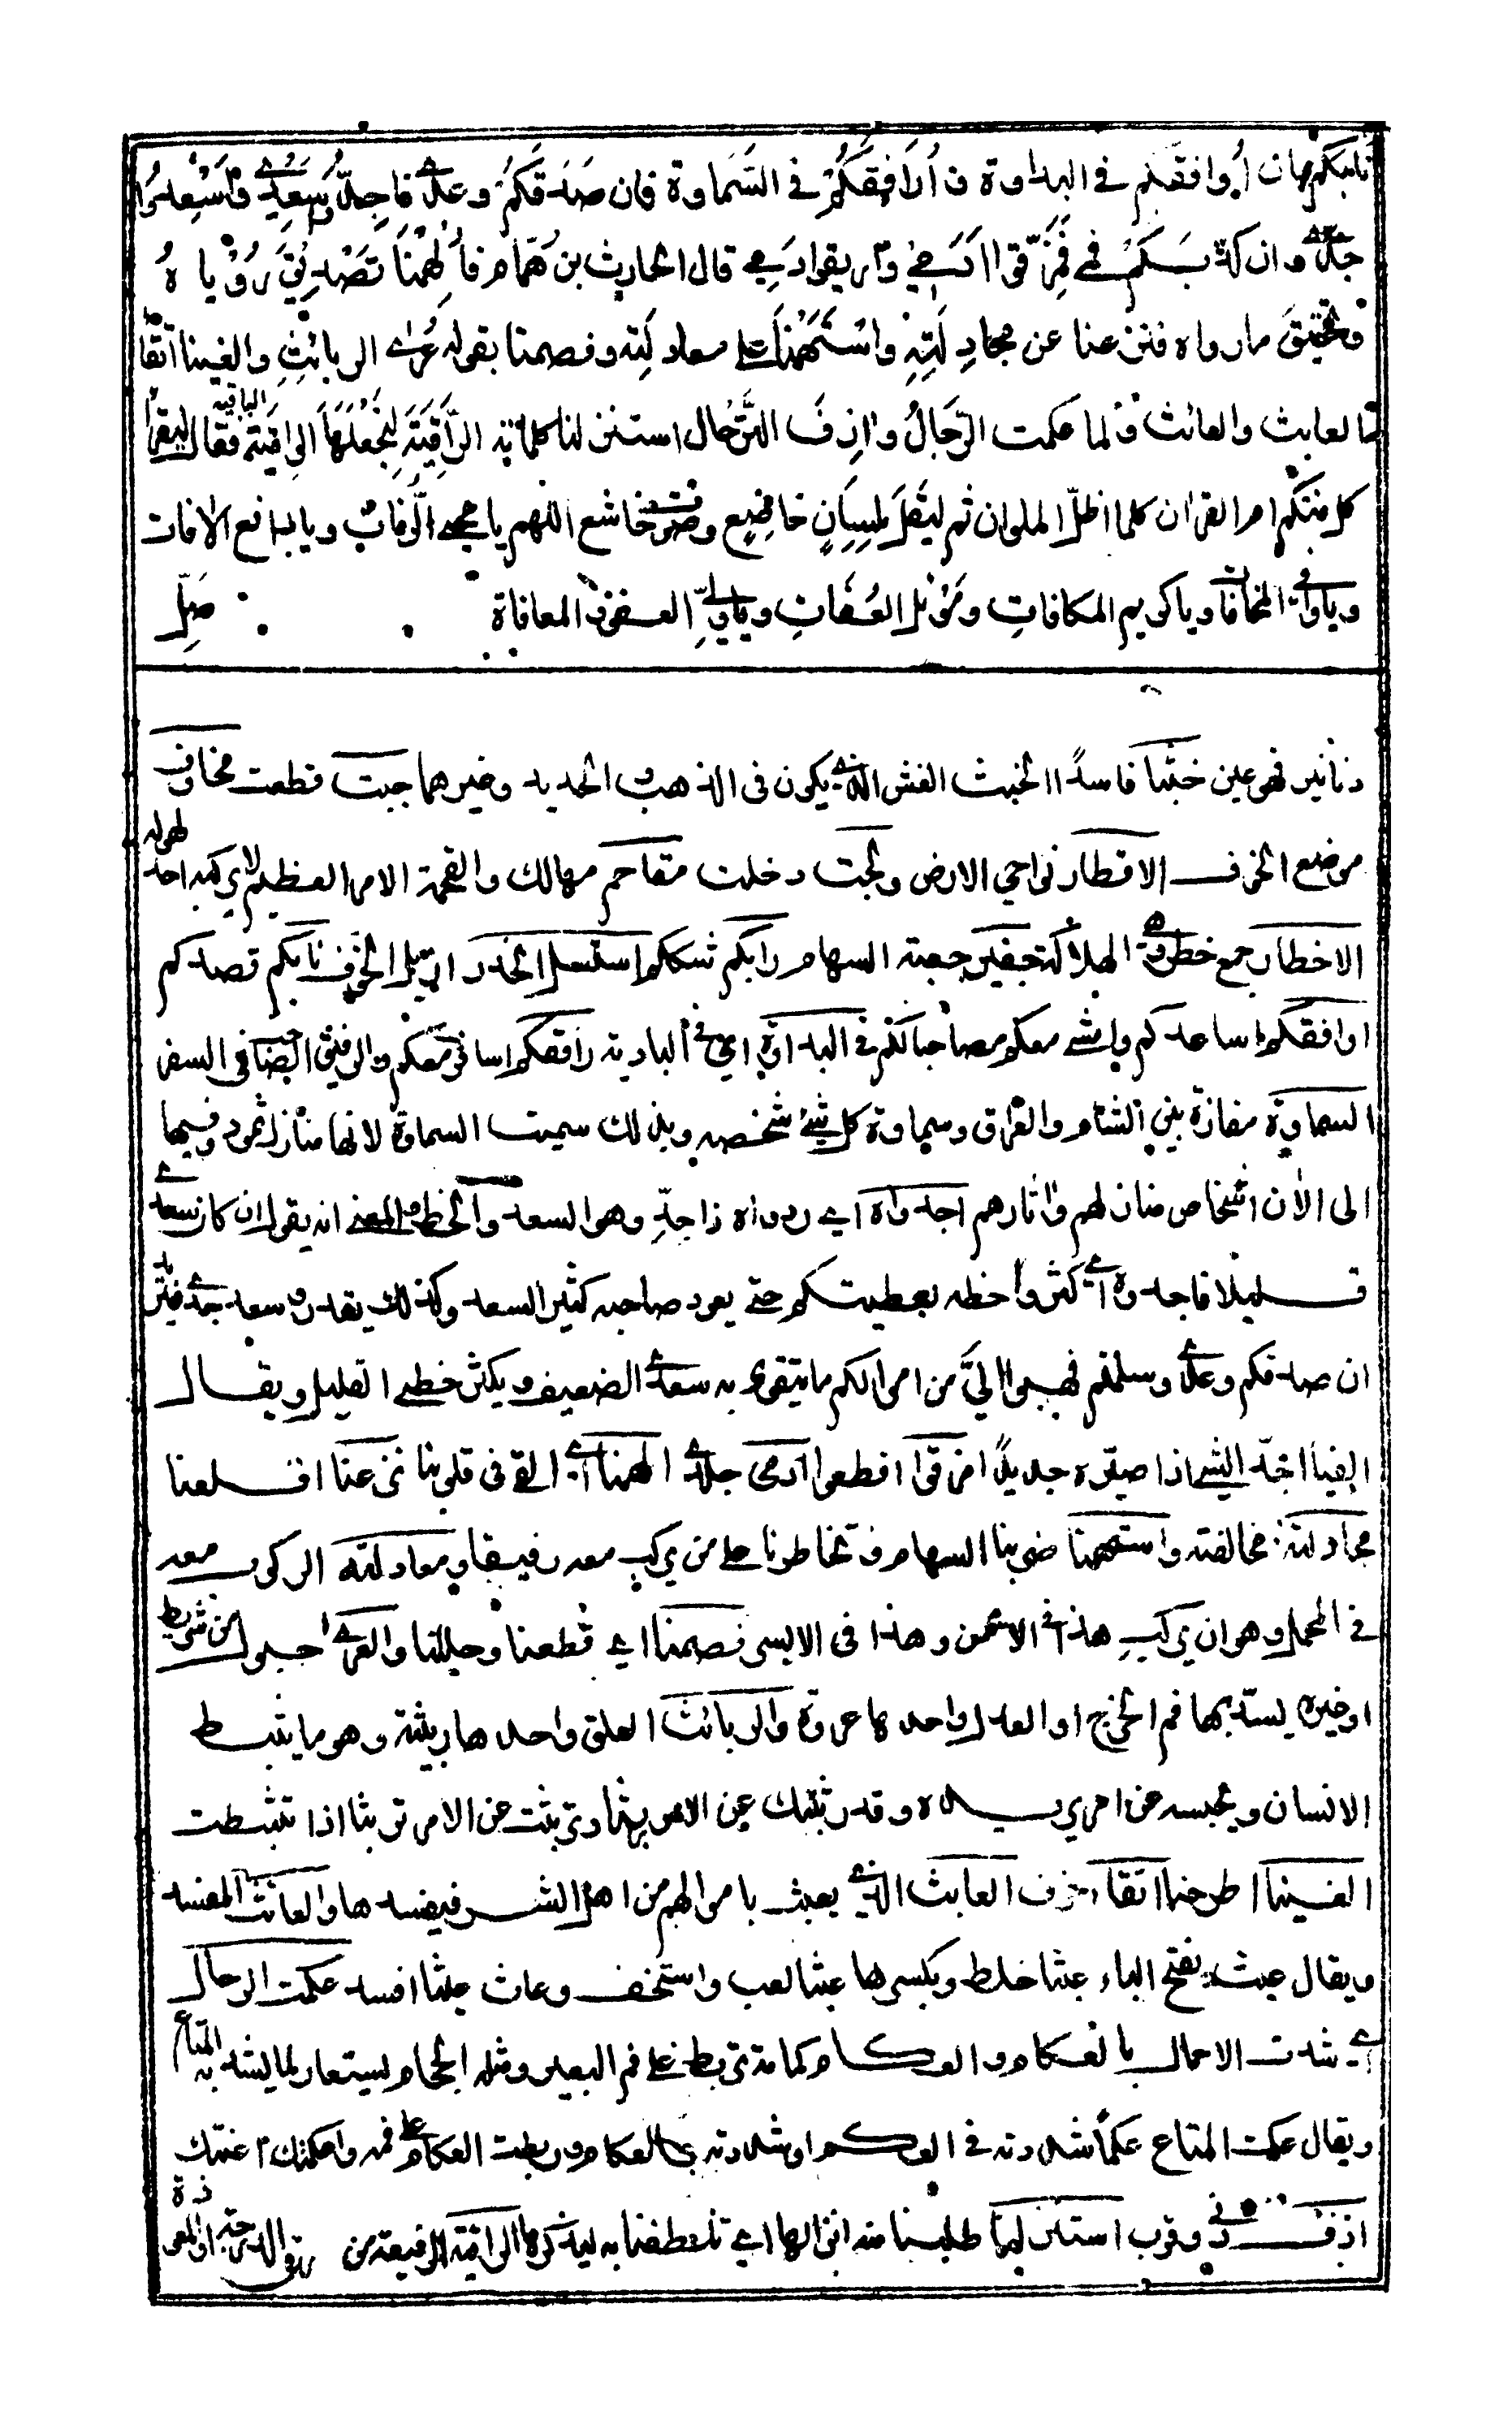 نابكم بان اوافقكم في البداوة و ارافقكم في السماوة فان صدقكم وعدي فاجدوا سعدي واسعدوا
جدي وان كذبكم فمي فمزقوا ادمي واريقوا دمي قال الحارث بن همام فالهمنا تصديق رؤياه
وتحقيق مارواه فنزعنا عن مجادلته واستهمنا على معادلته وفصمنا بقوله عرى الربائث والغينا اتقا
العابث والعائث ولما عكمت الرحال وازف الترحال استنزلنا كلماته الراقية لنجعلها الواقية الباقية فقال ليقرا
كل منكم ام القران كلما اظل الملوان ثم ليقل بلسان خاضع وصوت خاشع اللهم يا محيي الرفات ويا دافع الافات
وياواقي المخافات وياكريم المكافات وموئل العفات وياولي العفو والمعافاة صل
دنانير فهو عين خبثا فاسدا الخبث الغش الذي يكون في الذهب والحديد وغيرهما جبت قطعت مخاوف
موضع الخوف الاقطار نواحي الارض ولجت دخلت مقاحم مهالك والقحمة الامر العظيم لا يركبه احد لهوله
الاخطار جمع خطر وهي الهلاك جفير جعبة السهام رابكم شككم استسل الحذر ازيل الخوف نابكم قصدكم
اوافقكم اساعدكم وامشي معكم مصاحبا لكم في البداوة اي في البادية رافقكم اسافر معكم والرفيق الصاحب في السفر
السماوة مفازة بين الشام والعراق وسماوة كل شيء شخصه وبذلك سميت السماوة لانها منازل ثمود وفيها
الى الان اشخاص منازلهم واثارهم اجدواه اي ردواه ذا جد وهو السعد والحظ والمعنى انه يقول ان كان سعدي
قليلا فاجدوه اي كثروا حظه بعطيتكم حتى يعود صاحبه كثير السعد وكذلك يقدر واسعدوا جدي فيريد
ان صدقكم وعدي وسلمتم فهبوا الي من اموالكم ما يتقوى به سعدي الضعيف ويكثر حظي القليل ويقال
ايضا اجد الشي اذا صيره جديدا مزقوا اقطعوا ادمي جلدي الهمنا اي القي في قلوبنا نزعنا اقلعنا
مجادلته مخالفته واستهمنا ضربنا السهام وتخاطرنا على من يركب معه رفيقا ومعادلته الركوب معه
في المحمل وهو ان يركب هذا في الايمن وهذا في الايسر فصمنا اي قطعنا وحللنا والعرى احبول من شريط
اوغيره يستد بها فم الخرج او العدل واحدها عروة والربائث العلق واحدها ربيثة وهو ما يثبط
الانسان ويحبسه عن امر يريده وقد ربثتك عن الامر ربثا وتربثت عن الامر تربثا اذا تثبطت
الغينا اطرحنا اتقاء خوف العابث الذي يعبث باموالهم من اهل الشر فيفسدها والعائث المفسد
ويقال عبث بفتح الباء عبثا خلط وبكسرها عبثا لعب واستخف وعاث عيثا افسد عكمت الرحال
اي شدت الاحمال بالعكام والعكام كمامة تربط على فم البعير ومثله الحجام يستعار لما يشد به المتاع
ويقال عكمت المتاع عكما شددته في العكم او شددته بالعكام وربطت العكام على فمه واعكمتك اعنتك
ازف دنى وقرب استنزلنا طلبنا منه انزالها اي تلطفنا به ليذكرها الراقية الرفيعة من